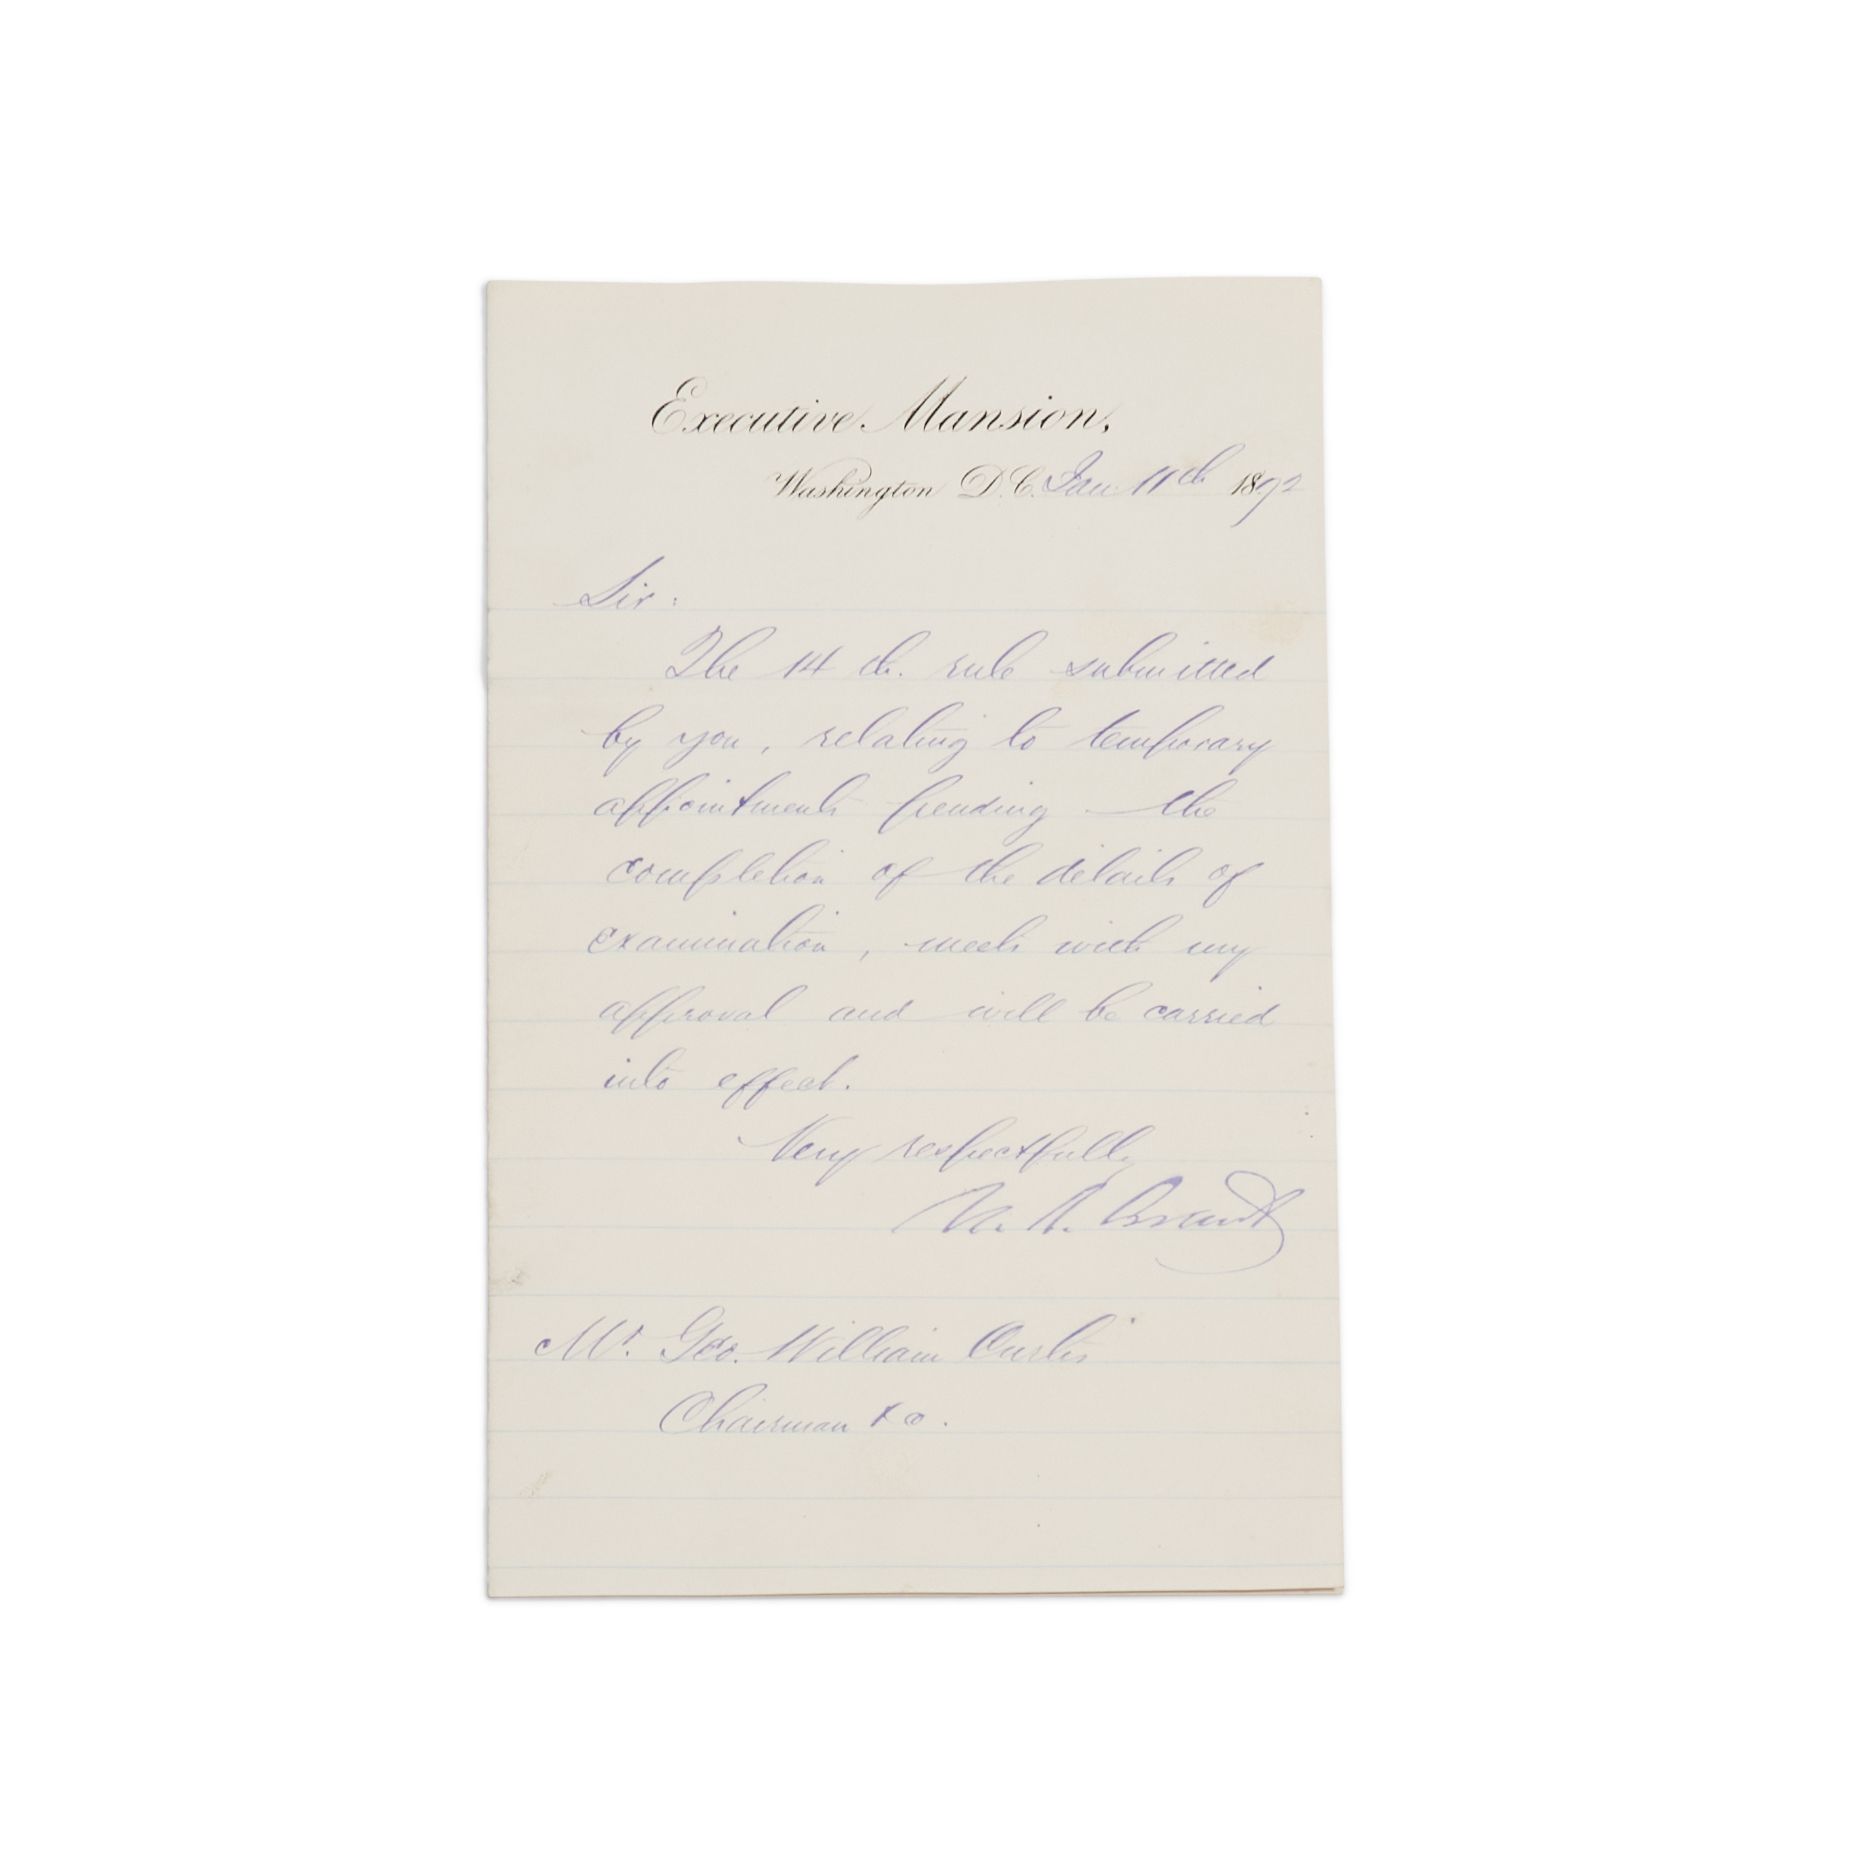 Executive Mansion,
Washington D.C. Jan. 11th 1872
Sir:
The 14th. rule submitted
by you, relating to temporary
appointments pending the
completion of the details of
examination, meets with my
approval and will be carried
into effect.
Very respectfully
U. S. Grant
Mr. Geo. William Curtis
Chairman &c.